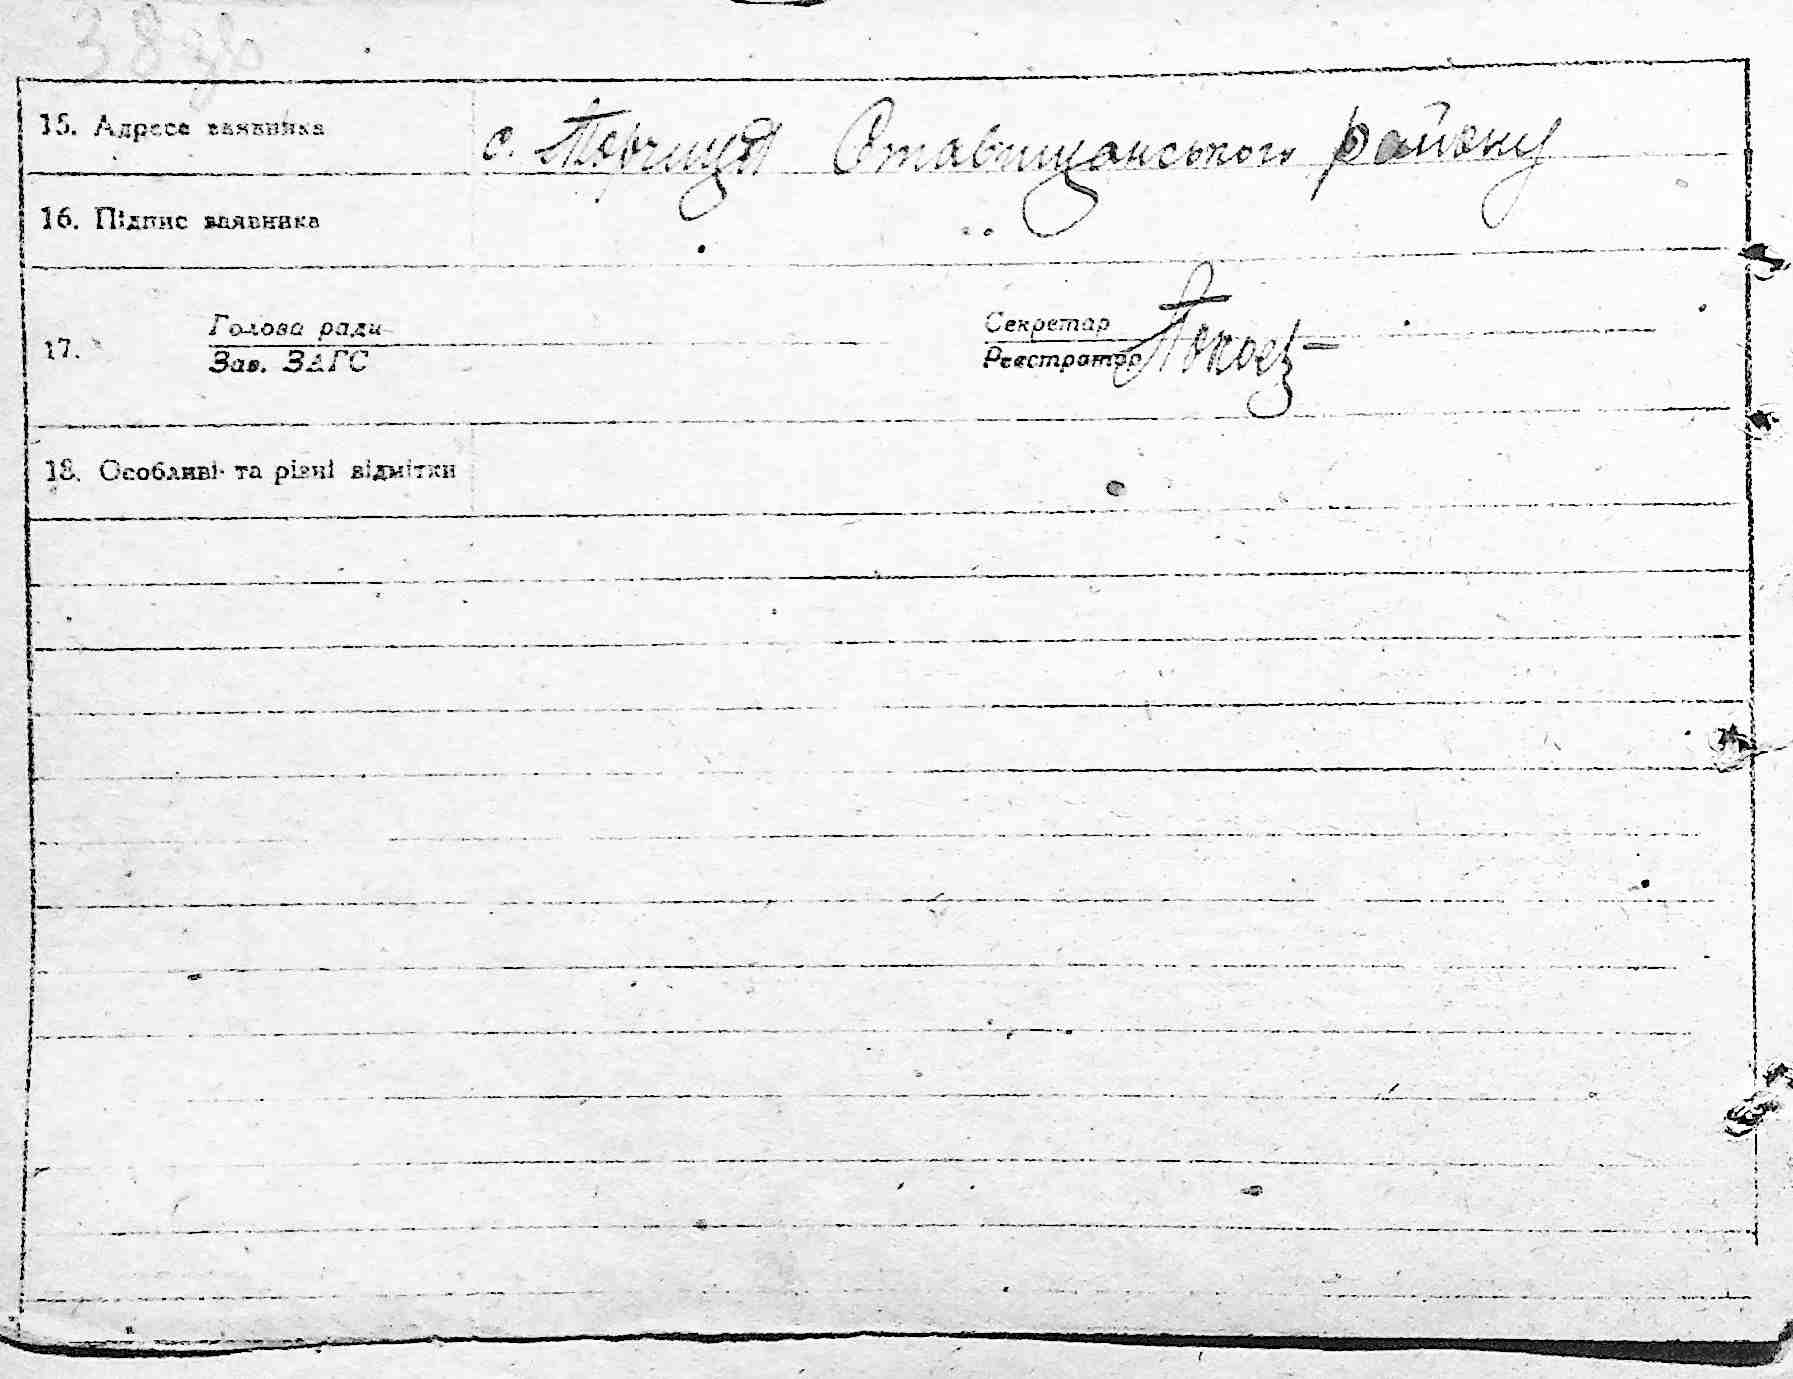 38 зв
15. Адреса заявника с. Торчиця Ставищанського району
16. Підпис заявника
17. Голова ради Секретар
Зав. ЗАГС Реєстратор
18. Особливі та різні відмітки